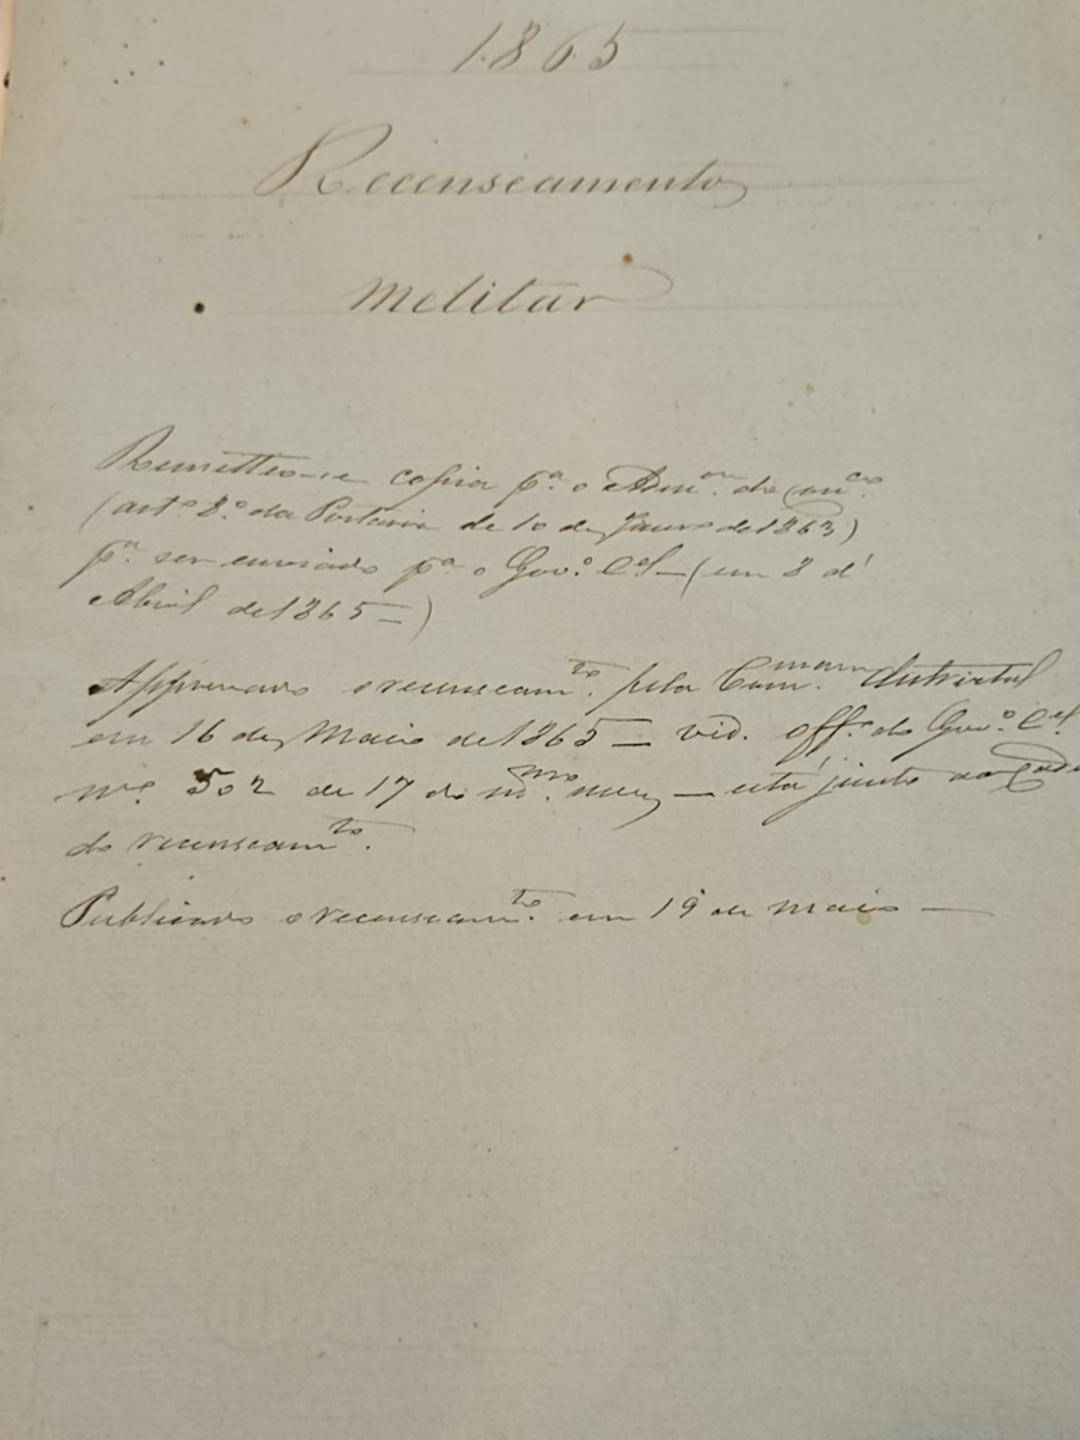 1865
Recenseamento
Melitar
Remetteo-se copia p.ª o Adm.or do con.co
(art.º 8.º da Portaria de 10 de Janro de 1863)
p.ª ser enviado p.ª o Gov.º C.el — (em 3 d'
Abril de 1865 —)
Approvado o recenseam.to pela Com.mam districtal
em 16 de Maio de 1865 — vid. off.º do Gov.º C.el
nº 502 de 17 do m.mo mez — está junto ao
do recenseam.to
Publicado o recenseam.to em 19 de Maio —